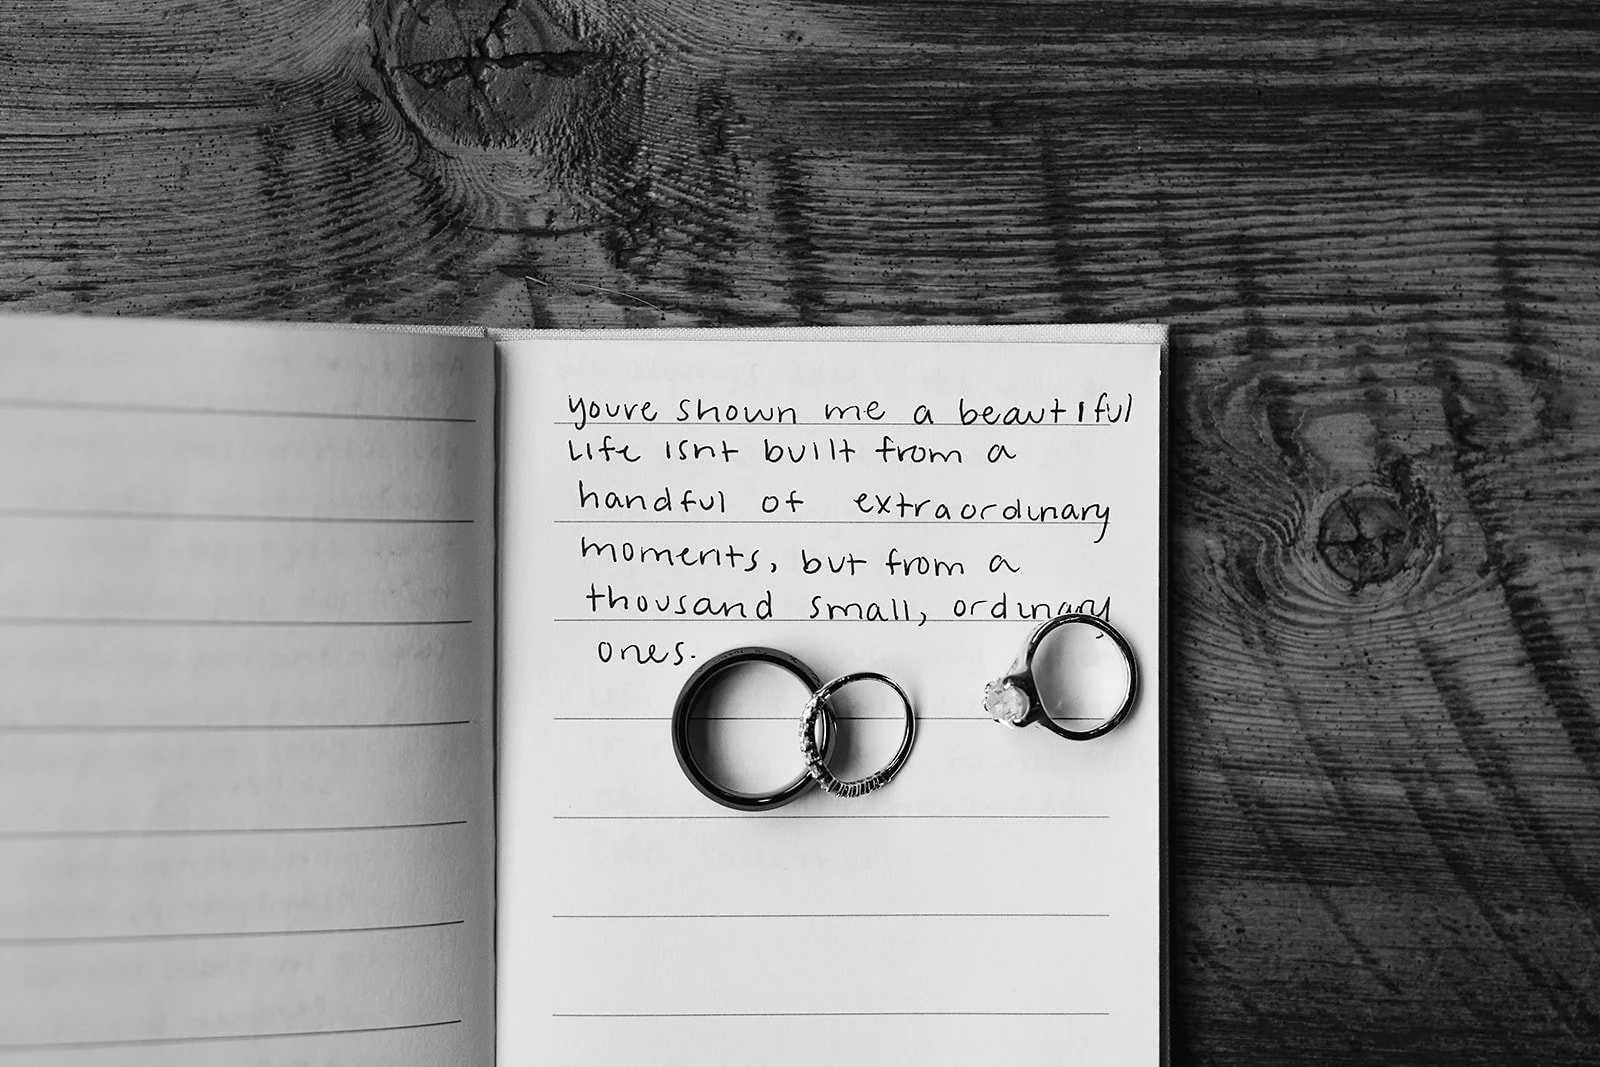 youre shown me a beautiful
Life isnt built from a
handful of extraordinary
moments, but from a
thousand small, ordinary
ones.